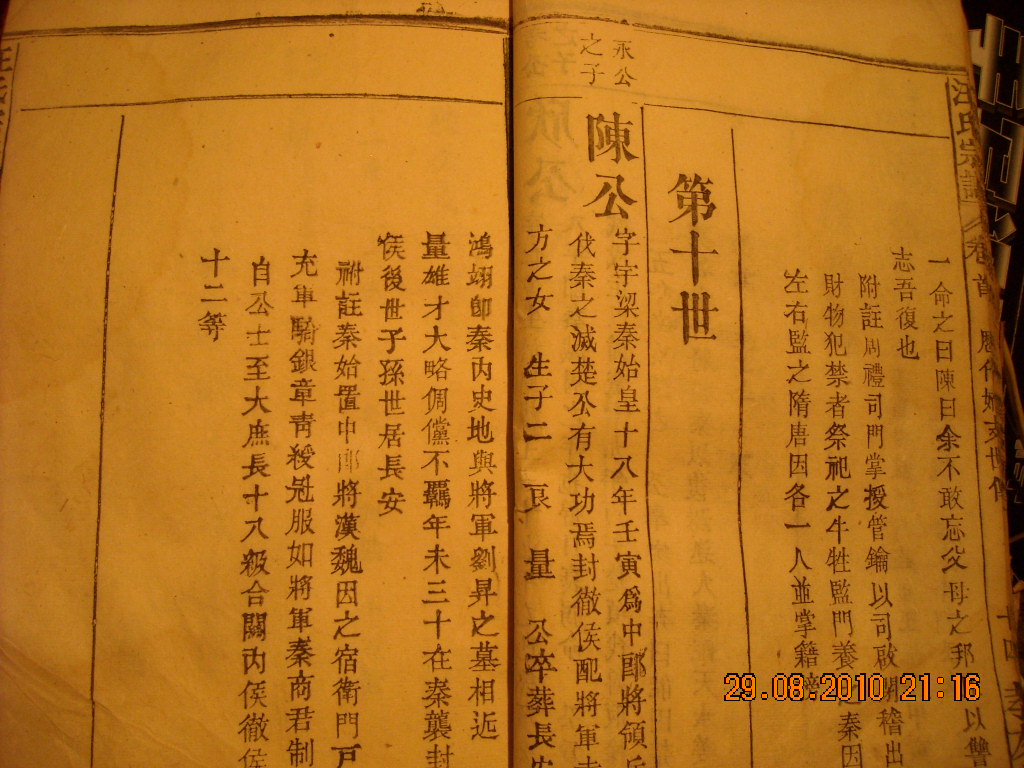 汪氏宗譜
卷首
歷代始玄世傳
十四
一命之曰陳曰余不敢忘父母之邦以讐
志吾復也
附註周禮司門掌授管鑰以司啟閉稽出
財物犯禁者祭祀之牛牲監門養之秦因
左右監之隋唐因各一人並掌籍
第十世
永公
之子
陳公
字宇梁秦始皇十八年壬寅爲中郎將領兵
伐秦之滅楚公有大功焉封徹侯配將軍
方之女 生子二 良 量 公卒葬長安
鴻翊卽秦內史地與將軍劉昇之墓相近
量雄才大略倜儻不羈年未三十在秦襲封
侯後世子孫世居長安
附註秦始置中郎將漢魏因之宿衛門戶
充車騎銀章靑綬冠服如將軍秦商君制
自公士至大庶長十八級合關內侯徹侯
十二等
29.08.2010 21:16